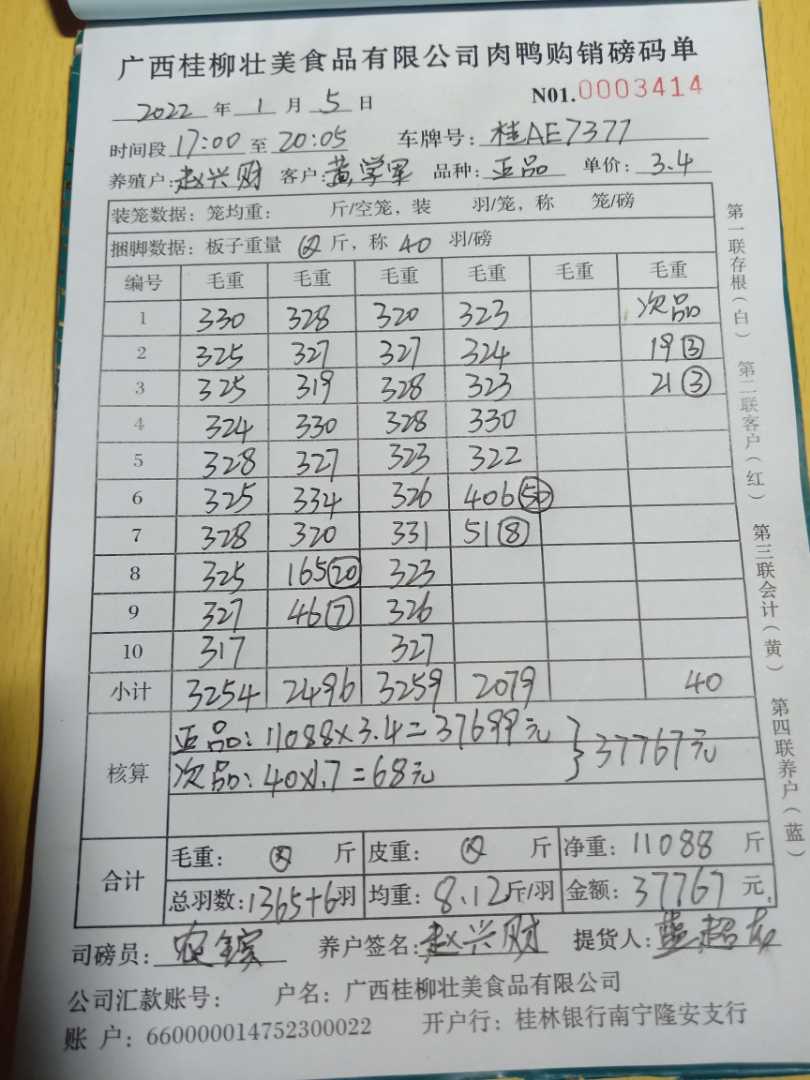 广西桂柳壮美食品有限公司肉鸭购销磅码单
N01.0003414
2022年1月5日
时间段17:00至20:05 车牌号:桂AE7377
养殖户:赵兴财 客户:黄学军 品种:正品 单价:3.4
装笼数据:笼均重: 斤/空笼,装 羽/笼,称 笼/磅
捆脚数据:板子重量 斤,称 40 羽/磅
编号 毛重 毛重 毛重 毛重 毛重 毛重
1 330 328 320 323 次品
2 325 327 327 324 19③
3 325 319 328 323 21③
4 324 330 328 330
5 328 327 323 322
6 325 334 326 406㊿
7 328 320 331 51⑧
8 325 165⑳ 323
9 327 46⑦ 326
10 317 327
小计 3254 2496 3259 2079 40
核算 正品:11088×3.4=37699元 } 37767元
次品:40×1.7=68元
合计 毛重: 斤 皮重: 斤 净重:11088斤
总羽数:1365+6羽 均重:8.12斤/羽 金额:37767元
司磅员: 养户签名:赵兴财 提货人:
公司汇款账号: 户名:广西桂柳壮美食品有限公司
账 户:660000014752300022 开户行:桂林银行南宁隆安支行
第一联存根(白) 第二联客户(红) 第三联会计(黄) 第四联养户(蓝)